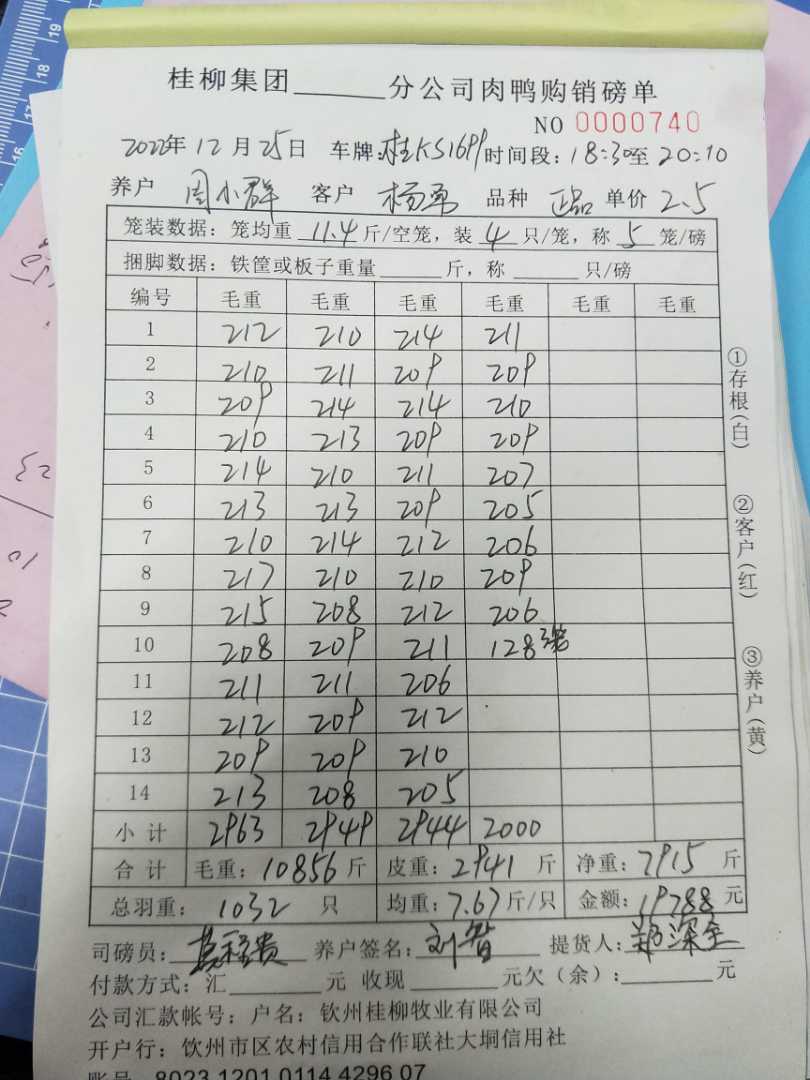 桂柳集团______分公司肉鸭购销磅单
NO 0000740
2022年12月25日 车牌:桂KS1699 时间段:18:30至20:10
养户 周小群 客户 杨勇 品种 正品 单价 2.5
笼装数据:笼均重 11.4 斤/空笼,装 4 只/笼,称 5 笼/磅
捆脚数据:铁筐或板子重量______斤,称______只/磅
编号 毛重 毛重 毛重 毛重 毛重 毛重
1 212 210 214 211
2 210 211 209 209
3 209 214 214 210
4 210 213 209 209
5 214 210 211 207
6 213 213 209 205
7 210 214 212 206
8 217 210 210 209
9 215 208 212 206
10 208 209 211 128 3笼
11 211 211 206
12 212 209 212
13 209 209 210
14 213 208 205
小计 2963 2949 2944 2000
合计 毛重:10856斤 皮重:2941斤 净重:7915斤
总羽重:1032只 均重:7.67斤/只 金额:19788元
司磅员: 养户签名:刘智 提货人:郑深全
付款方式:汇______元 收现______元欠(余):______元
公司汇款帐号:户名:钦州桂柳牧业有限公司
开户行:钦州市区农村信用合作联社大垌信用社
账号 8023 1201 0114 4296 07
①存根(白)
②客户(红)
③养户(黄)